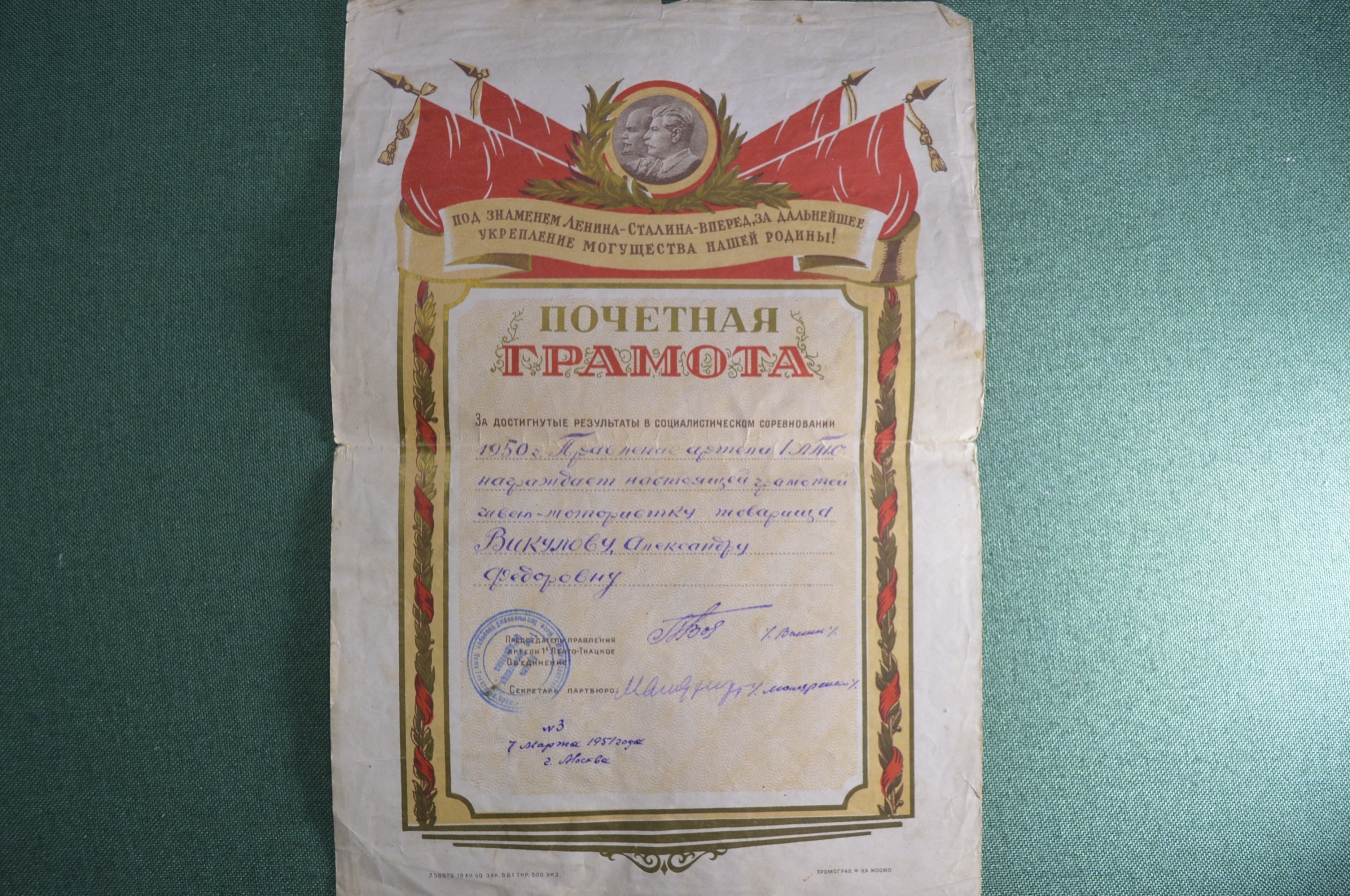 ПОД ЗНАМЕНЕМ ЛЕНИНА-СТАЛИНА-ВПЕРЕД, ЗА ДАЛЬНЕЙШЕЕ
УКРЕПЛЕНИЕ МОГУЩЕСТВА НАШЕЙ РОДИНЫ!
ПОЧЕТНАЯ
ГРАМОТА
ЗА ДОСТИГНУТЫЕ РЕЗУЛЬТАТЫ В СОЦИАЛИСТИЧЕСКОМ СОРЕВНОВАНИИ
1950 г. Правление артели
награждает настоящей грамотой
швею-мотористку товарища
Викулову, Александру
Федоровну
ПРЕДСЕДАТЕЛЬ ПРАВЛЕНИЯ
АРТЕЛИ
ОБЪЕДИНЕНИЕ
СЕКРЕТАРЬ ПАРТБЮРО:
№3
7 Марта 1951 года
г. Москва